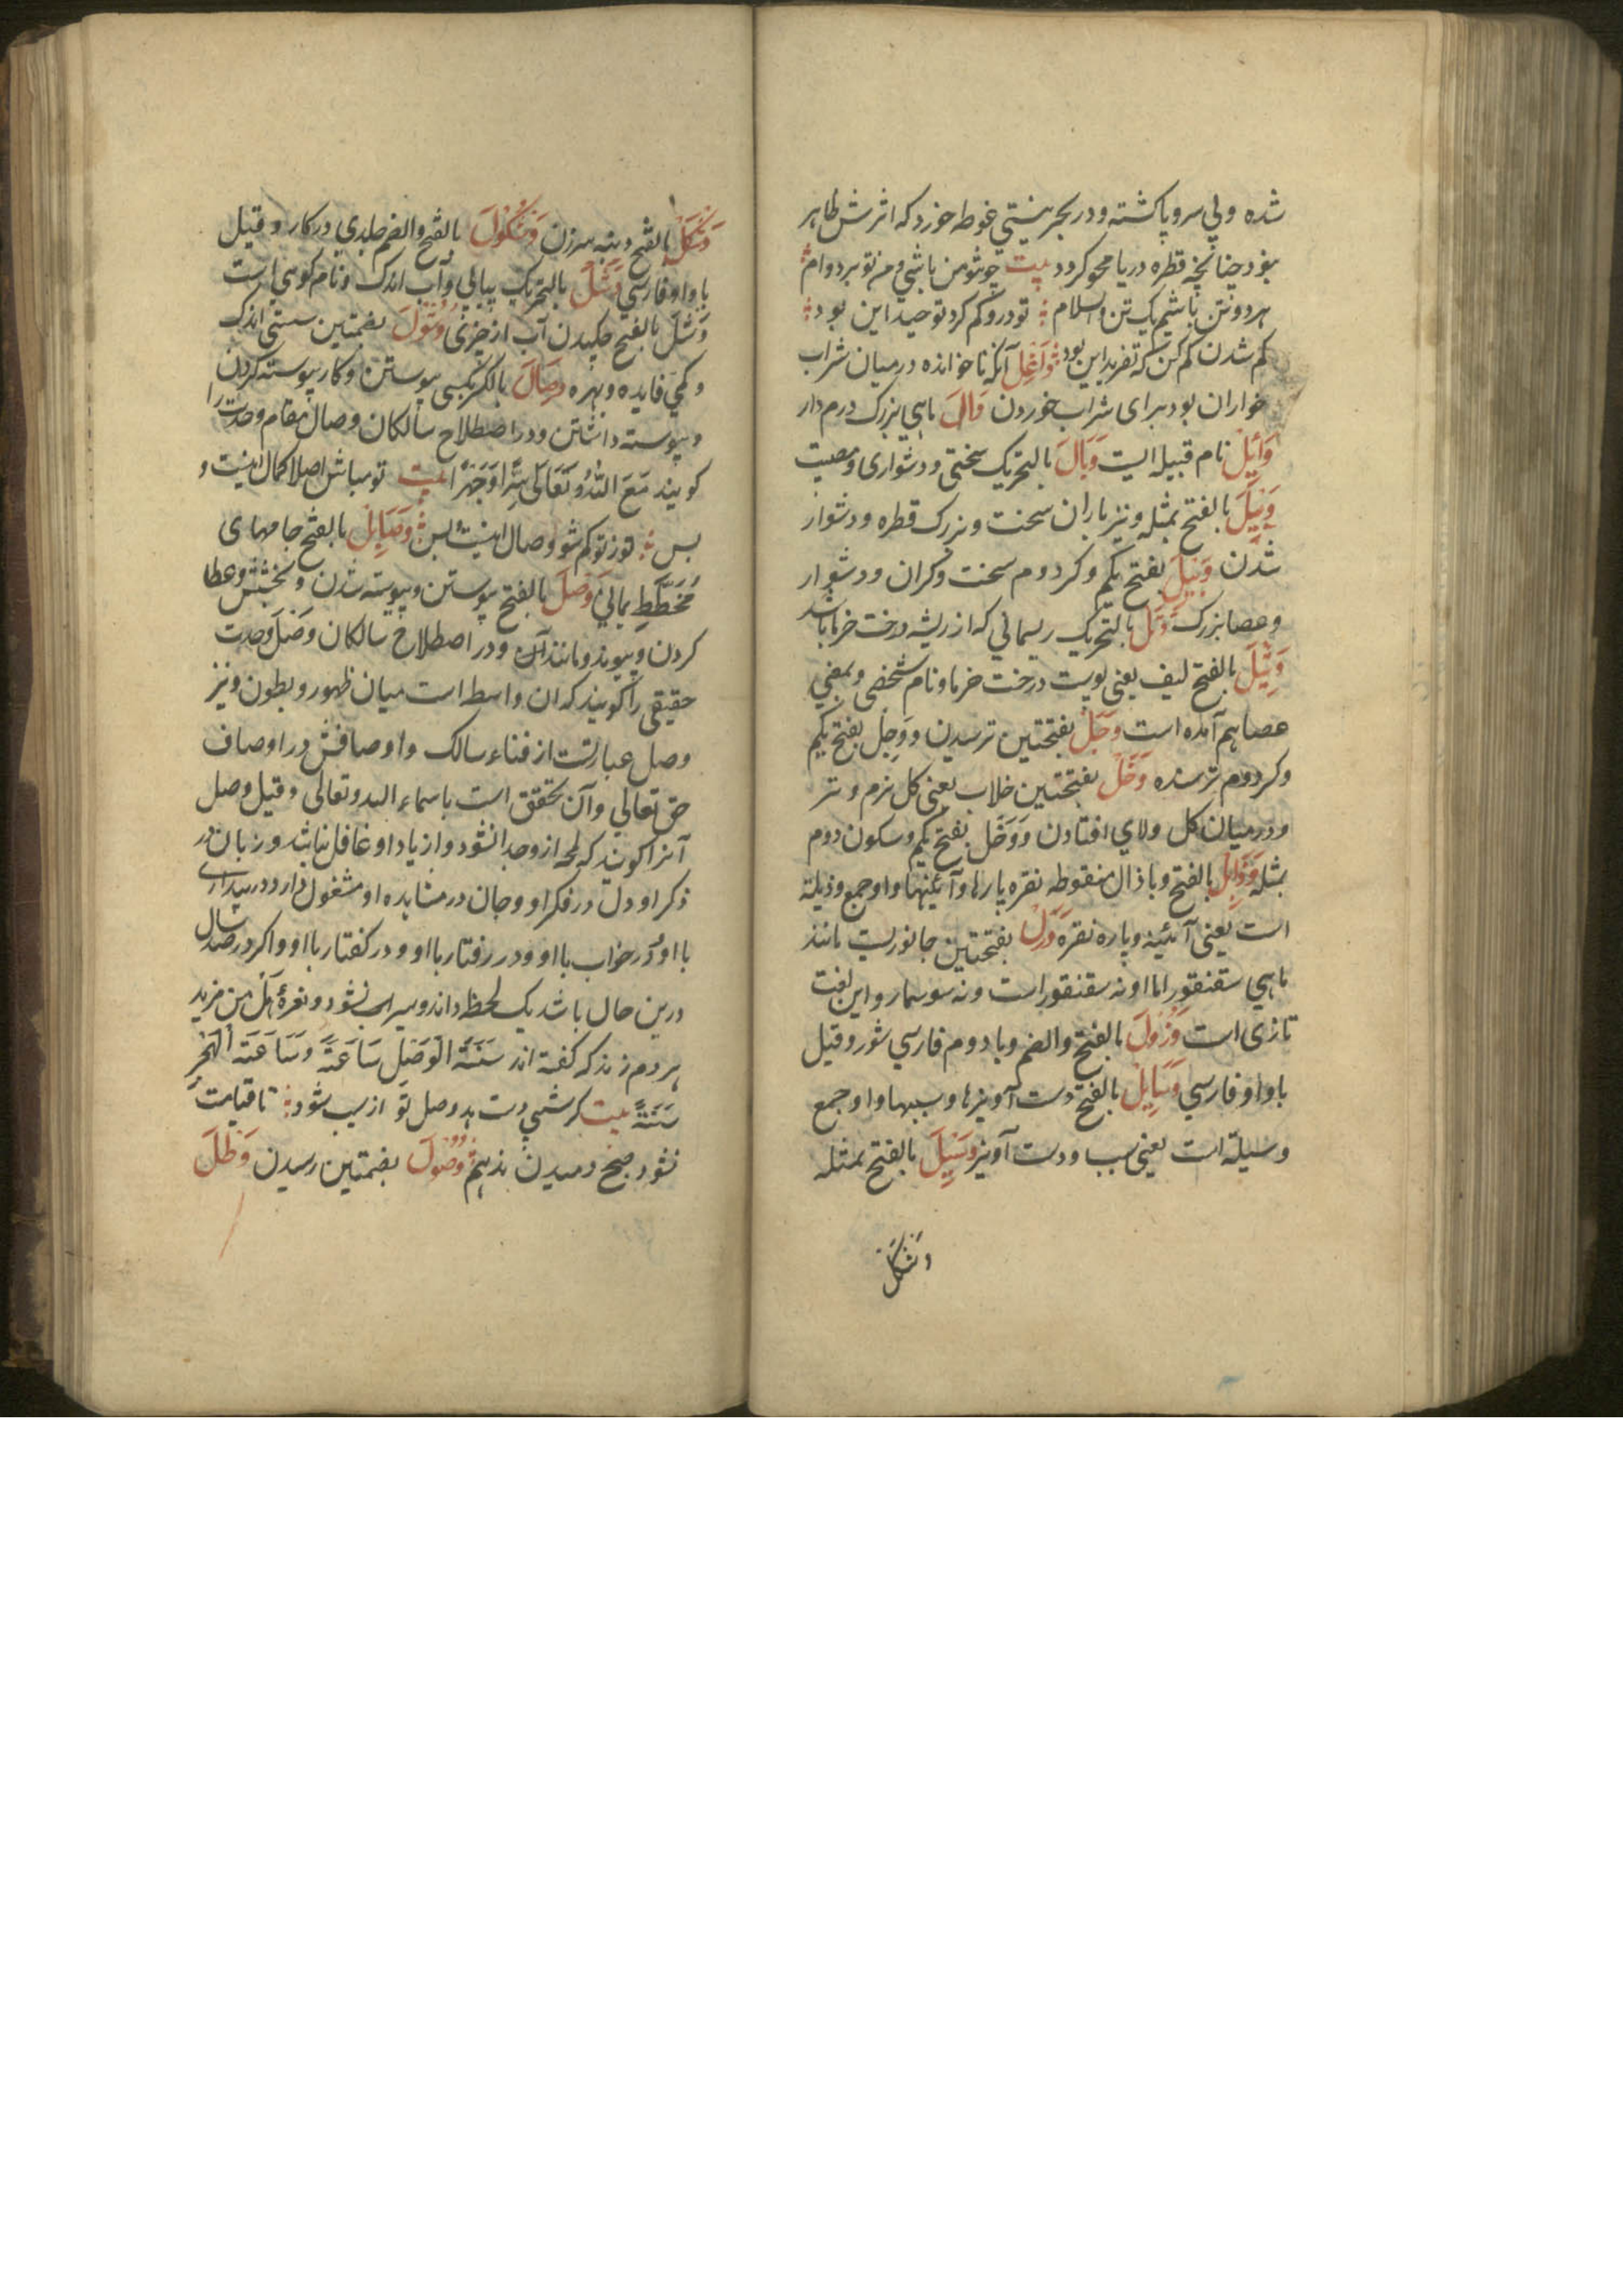 شده وبی سروپا کشته ودر بحر نیستی غوطه خورد که اثرش ظاهر
نبود چنانچه قطره دریا محو کردد بیت چو تو من باشی و من تو بر دوام
هر دو تن باشیم یک تن والسلام تو درو کم کرد توحید این بود
کم شدن کم کن که تفرید این بود واغل آنکه ناخوانده در میان شراب
خواران بود برای شراب خوردن وال ماهی بزرک درم دار
وائل نام قبیله ایست وبال بالتحریک سختی ودشواری ومصیبت
وبیل بالفتح بمثله ونیز باران سخت وبزرک قطره ودشوار
شدن وبیل بفتح یکم وکسر دوم سخت وکران ودشوار
وعصا بزرک وثل بالتحریک ریسمانی که از ریشه درخت خرما باشد
وثیل بالفتح لیف یعنی پوست درخت خرما ونام شخصی وبمعنی
عصا هم آمده است وجل بفتحتین ترسیدن ووجل بفتح یکم
وکسر دوم ترسنده وحل بفتحتین خلاب یعنی کل نرم وتر
ودر میان کل ولای افتادن ووحل بفتح یکم وسکون دوم
بمثله وذایل بالفتح وبا ذال منقوطه نقره پارها وآئینها واو جمع وذیلة
است یعنی آئینه وپاره نقره ورل بفتحتین جانوریست مانند
ماهی سقنقور اما او نه سقنقور است ونه سوسمار واین لغت
تازی است وژول بالفتح والضم وبا دوم فارسی شور وقیل
با واو فارسی وسایل بالفتح دست آویزها وسببها واو جمع
وسیلة است یعنی سبب ودست آویز وسیل بالفتح بمثله
وشکل
وشکل بالفتح دنبه سرزن وشکول بالفتح والضم جلدی در کار وقیل
با واو فارسی وشل بالتحریک پیاپی وآب اندک ونام کوهی است
وشل بالفتح چکیدن آب از چیزی وشول بضمتین سستی اندک
وکمی فایده وبهره وصال بالکسر بکسی پیوستن وکار پیوسته کردن
وپیوسته داشتن ودر اصطلاح سالکان وصال مقام وحدت را
کویند مع الله تعالی سرا وجهرا بیت تو مباش اصلا کمال اینست و
بس تو ز تو کم شو وصال اینست بس وصایل بالفتح جامهای
مخطط یمانی وصل بالفتح پیوستن وپیوسته شدن وبخشش وعطا
کردن وپیوند ومانند آن ودر اصطلاح سالکان وصل وحدت
حقیقی را کویند که آن واسط است میان ظهور وبطون ونیز
وصل عبارتست از فناء سالک واوصافش در اوصاف
حق تعالی وآن تحقق است باسماء الله وتعالی وقیل وصل
آنرا کویند که لمحه از وجدا نشود واز یاد او غافل نباشد وزبان در
ذکر او ودل در فکر او وجان در مشاهده او مشغول دارد ودر بیداری
با او ودر خواب با او ودر رفتار با او ودر کفتار با او واکر در صد سال
درین حال باشد یک لحظه داند وسیراب نشود ونعرهٔ هل من مزید
هر دم زند که کفته اند سنة الوصل ساعة وساعة الهجر
سنة بیت کر شبی دست بدهد وصل تو از سبب شود تا قیامت
نشود صبح دمیدن ندهیم وصول بضمتین رسیدن وظل